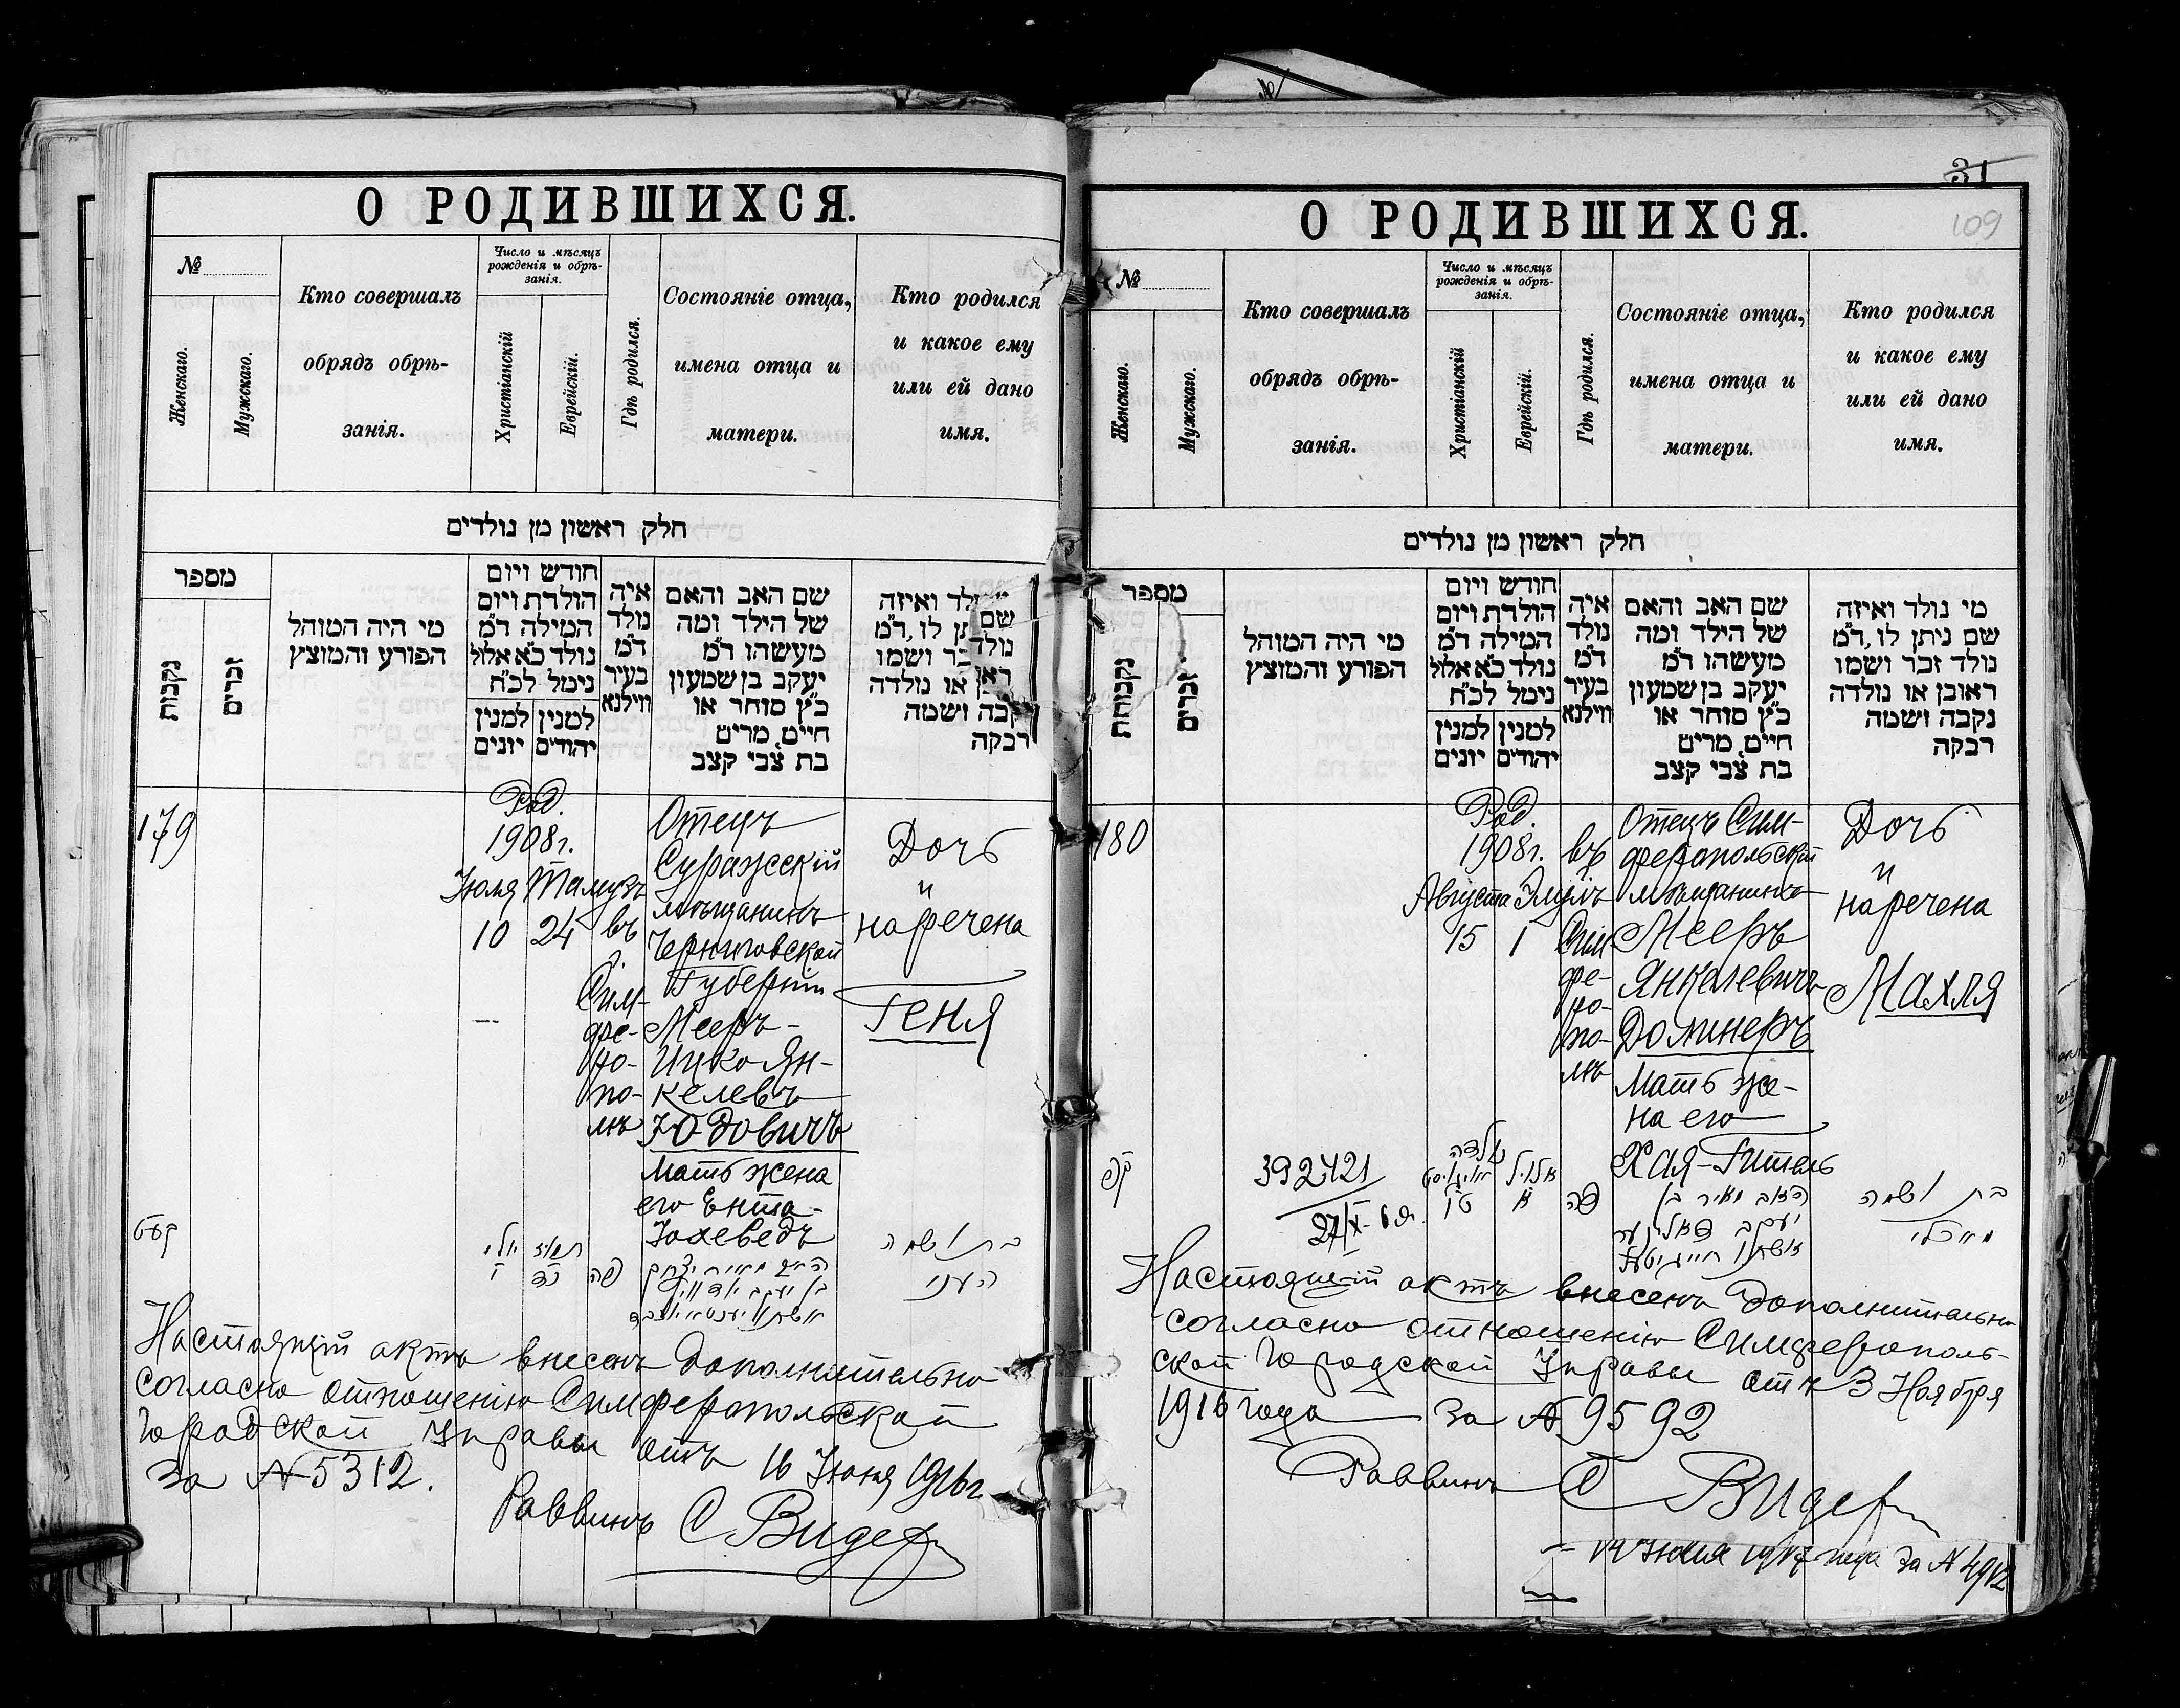 О РОДИВШИХСЯ.
№
Женскаго.
Мужскаго.
Кто совершалъ
обрядъ обрѣ-
занія.
Число и мѣсяцъ
рожденія и обрѣ-
занія.
Христіанскій
Еврейскій.
Гдѣ родился.
Состояніе отца,
имена отца и
матери.
Кто родился
и какое ему
или ей дано
имя.
חלק ראשון מן נולדים
מספר
נקבות
זכרים
מי היה המוהל
הפורע והמוצץ
חודש ויום
הולדת ויום
המילה ד״מ
נולד כ״א אלול
נימל לכ״ח
למנין יונים
למנין יהודים
איה
נולד
ד״מ
בעיר
ווילנא
שם האב והאם
של הילד ומה
מעשהו ד״מ
יעקב בן שמעון
כ״ץ סוחר או
חייט, מרים
בת צבי קצב
ואיזה
שם לו, ד״מ
ושמו
או נולדה
ושמה
רבקה
179
Род.
1908 г.
Іюля Тамузъ
10 24
въ
Сим-
фе-
ро-
по-
лѣ
Отецъ
Суражскій
мѣщанинъ
Черниговской
Губерніи
Мееръ-
Ицко Ян-
келевъ
Юдовичъ
Мать жена
его Ента-
Іохеведъ
Дочь
и
наречена
Геня
קעט
יולי
י
תמוז
כד
פה
בת ושמה
העני
Настоящій актъ внесенъ дополнительно
согласно отношенію Симферопольской
Городской Управы отъ 16 Іюня 1916 г.
за № 5312.
Раввинъ С Видер
31
109
О РОДИВШИХСЯ.
№
Женскаго.
Мужскаго.
Кто совершалъ
обрядъ обрѣ-
занія.
Число и мѣсяцъ
рожденія и обрѣ-
занія.
Христіанскій
Еврейскій.
Гдѣ родился.
Состояніе отца,
имена отца и
матери.
Кто родился
и какое ему
или ей дано
имя.
חלק ראשון מן נולדים
מספר
נקבות
זכרים
מי היה המוהל
הפורע והמוצץ
חודש ויום
הולדת ויום
המילה ד״מ
נולד כ״א אלול
נימל לכ״ח
למנין יונים
למנין יהודים
איה
נולד
ד״מ
בעיר
ווילנא
שם האב והאם
של הילד ומה
מעשהו ד״מ
יעקב בן שמעון
כ״ץ סוחר או
חייט, מרים
בת צבי קצב
מי נולד ואיזה
שם ניתן לו, ד״מ
נולד זכר ושמו
ראובן או נולדה
נקבה ושמה
רבקה
180
Род.
1908 г.
Августа Элулъ
15 1
въ
Сим
фе-
ро-
по-
лѣ
Отецъ Сим-
феропольскій
мѣщанинъ
Мееръ
Янкелевичъ
Долинеръ
Мать же-
на его
Хая-Гитель
Дочь
и
наречена
Махля
קפ
392421
נולדה
אויגוסט
טו
אלול
א
פה
האב מאיר בן
יעקב דאלינער
בת ושמה
מאכלי
Настоящій актъ внесенъ дополнительно
согласно отношенію Симферополь-
ской Городской Управы отъ 3 Ноября
1916 года за № 9592
Раввинъ С Видер
14 Іюля 1917 года за №